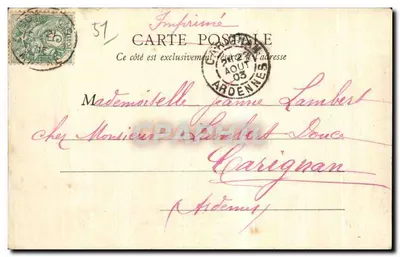 51
Imprimé
CARTE POSTALE
Ce côté est exclusivement adresse
AOUT
03
ARDENNES
Mademoiselle Jeanne Lambert
chez Monsieur Lambert Douce
Carignan
(Ardennes)